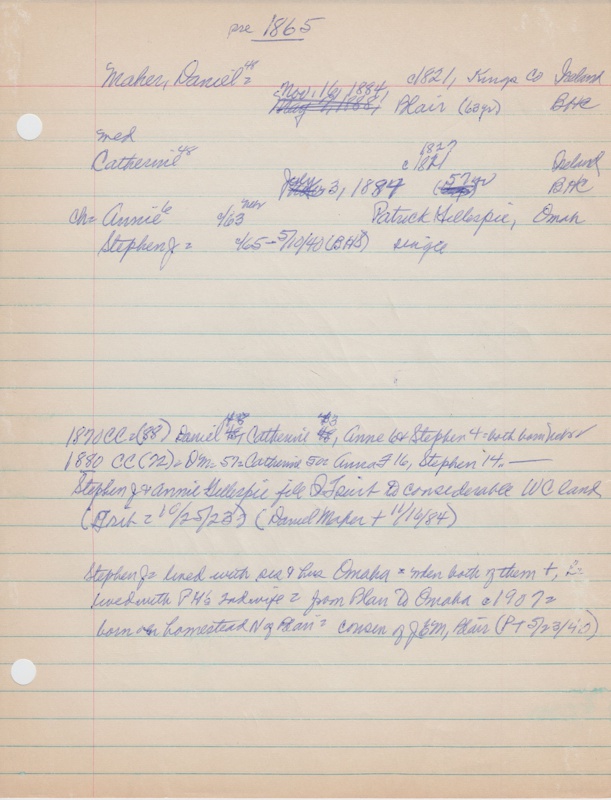 pre 1865
Maher, Daniel 48 = c1821, Kings Co Ireland
Nov. 16, 1884, Blair (63yr) BHC
med
Catherine 48 1827 c1821 Ireland
3, 1884 (57yr BHC
ch = Annie 6 c/63 Patrick Gillespie, Omah
Stephen J = c/65 - 5/10/40 (BHS) single
1870 CC = (88) Daniel 48, Catherine 43 48, Anne 6 & Stephen 4 = both born
1880 CC (72) = DM = 57 = Catherine 50 = Anna 16, Stephen 14 —
Stephen J & Annie Gillespie file to considerable WC land
( = 10/25/23) (Daniel Maher + 11/16/84)
Stephen J = lived with sis & hus Omaha & when both of them +,
lived with PH's 2nd wife = from Blair to Omaha c1907 =
born on homestead N of Blair = cousin of JEM, Blair (PT 5/23/40)